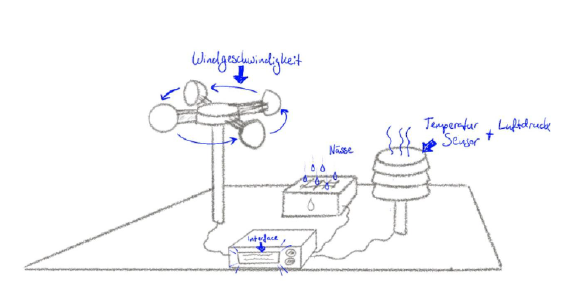 Windgeschwindigkeit
Temperatur
Sensor
+ Luftdruck
Nässe
interface